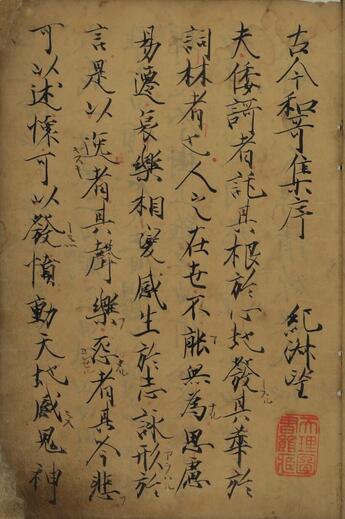 古今和哥集序　紀淑望
夫倭謌者託其根於心地發其華於
詞林者也人之在世不能無為思慮
易遷哀樂相變感生於志詠形於
言是以逸者其聲樂怨者其吟悲
可以述懐可以發憤動天地感鬼神
天理圖
書館藏